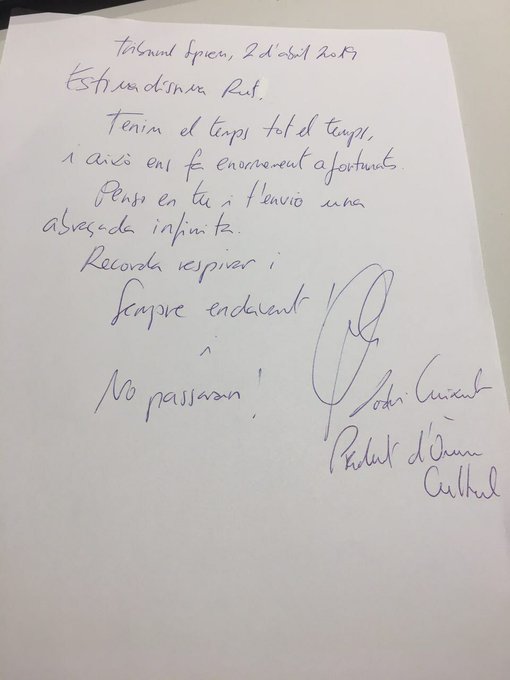 Tribunal Suprem, 2 d'abril 2019
Estimadíssima Rut,
Tenim el temps tot el temps,
i això ens fa enormement afortunats.
Penso en tu i t'envio una
abraçada infinita.
Recorda respirar i
Sempre endavant!
i
No passaran!
Jordi Cuixart
President d'Òmnium
Cultural